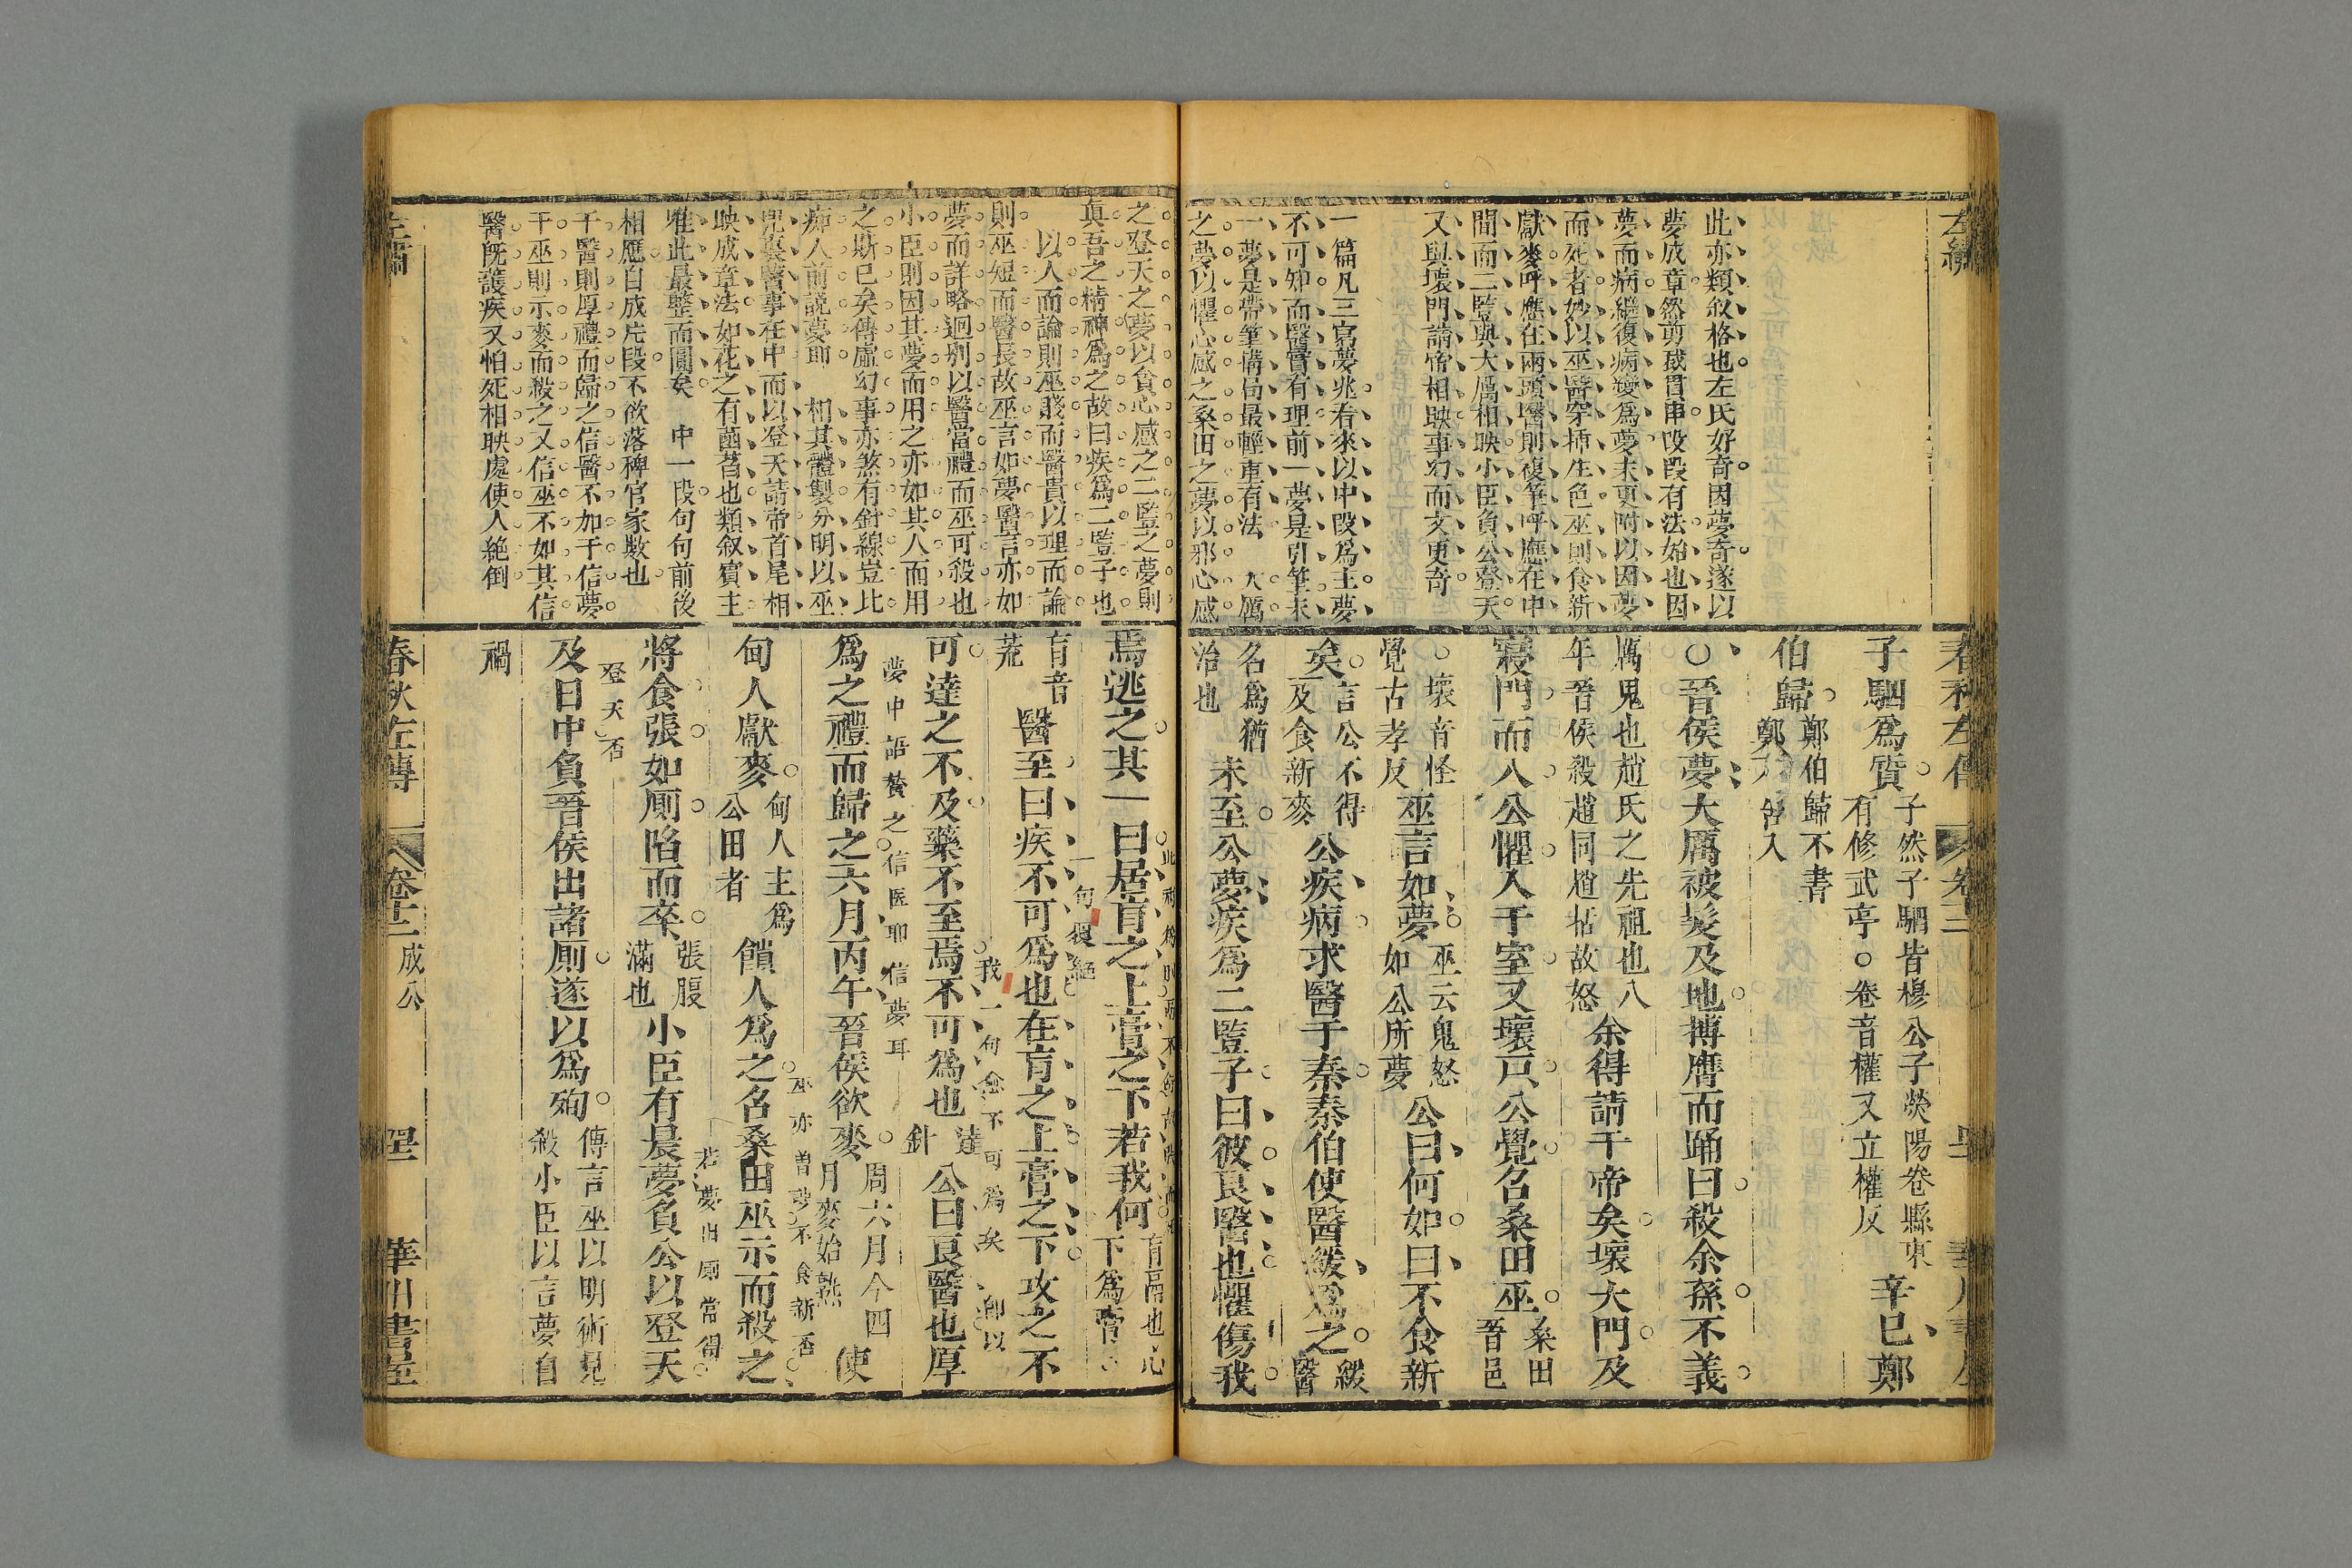 左繡
此亦類叙格也左氏好奇因夢奇遂以
夢成章然剪裁貫串段段有法始也因
夢而病繼復病變爲夢末更附以因夢
而死者妙以巫醫穿揷生色巫則食新
獻麥呼應在兩頭醫則複筆呼應在中
間而二豎與大厲相映小臣負公登天
又與壞門請帝相映事幻而文更奇
一篇凡三寫夢兆看來以中段爲主夢
不可知而醫實有理前一夢是引筆末
一夢是帶筆搆局最輕重有法 大厲
之夢以懼心感之桑田之夢以邪心感
春秋左傳
子駟爲質
子然子駟皆穆公子滎陽卷縣東
有修武亭○卷音權又立權反
辛巳鄭
伯歸
鄭伯歸不書
鄭不告入
○晉侯夢大厲被髮及地搏膺而踊曰殺余孫不義
厲鬼也趙氏之先祖也八
年晉侯殺趙同趙括故怒
余得請于帝矣壞大門及
寢門而入公懼入于室又壞戸公覺召桑田巫
桑田
晉邑
○壞音怪
覺古孝反
巫言如夢
巫云鬼怒
如公所夢
公曰何如曰不食新
矣
言公不得
及食新麥
公疾病求醫于秦秦伯使醫緩爲之
緩醫
名爲猶
治也
未至公夢疾爲二豎子曰彼良醫也懼傷我
之登天之夢以貪心感之二豎之夢則
真吾之精神爲之故曰疾爲二豎子也
以人而論則巫賤而醫貴以理而論
則巫短而醫長故巫言如夢醫言亦如
夢而詳略迥别以醫當禮而巫可殺也
小臣則因其夢而用之亦如其人而用
之斯已矣傳虛幻事亦煞有針線豈比
痴人前説夢耶 相其體製分明以巫
鬼裹醫事在中而以登天請帝首尾相
映成章法如花之有菡萏也類叙賓主
唯此最整而圓矣 中一段句句前後
相應自成片段不欲落稗官家數也
于醫則厚禮而歸之信醫不加于信夢
于巫則示麥而殺之又信巫不如其信
醫既護疾又怕死相映處使人絶倒
焉逃之其一曰居肓之上膏之下若我何
肓鬲也心
下爲膏
肓音
荒
醫至曰疾不可爲也在肓之上膏之下攻之不
一句複絕
可達之不及藥不至焉不可爲也
達
針
公曰良醫也厚
夢中語賛之信医耶信夢耳
爲之禮而歸之六月丙午晉侯欲麥
周六月今四
月麥始熟
使
甸人獻麥
甸人主爲
公田者
饋人爲之召桑田巫示而殺之
將食張如厠陷而卒
張腹
滿也
小臣有晨夢負公以登天
登天否
及日中負晉侯出諸厠遂以爲殉
傳言巫以明術見
殺小臣以言夢自
禍
左繡
春秋左傳
卷十二
成公
華川書屋